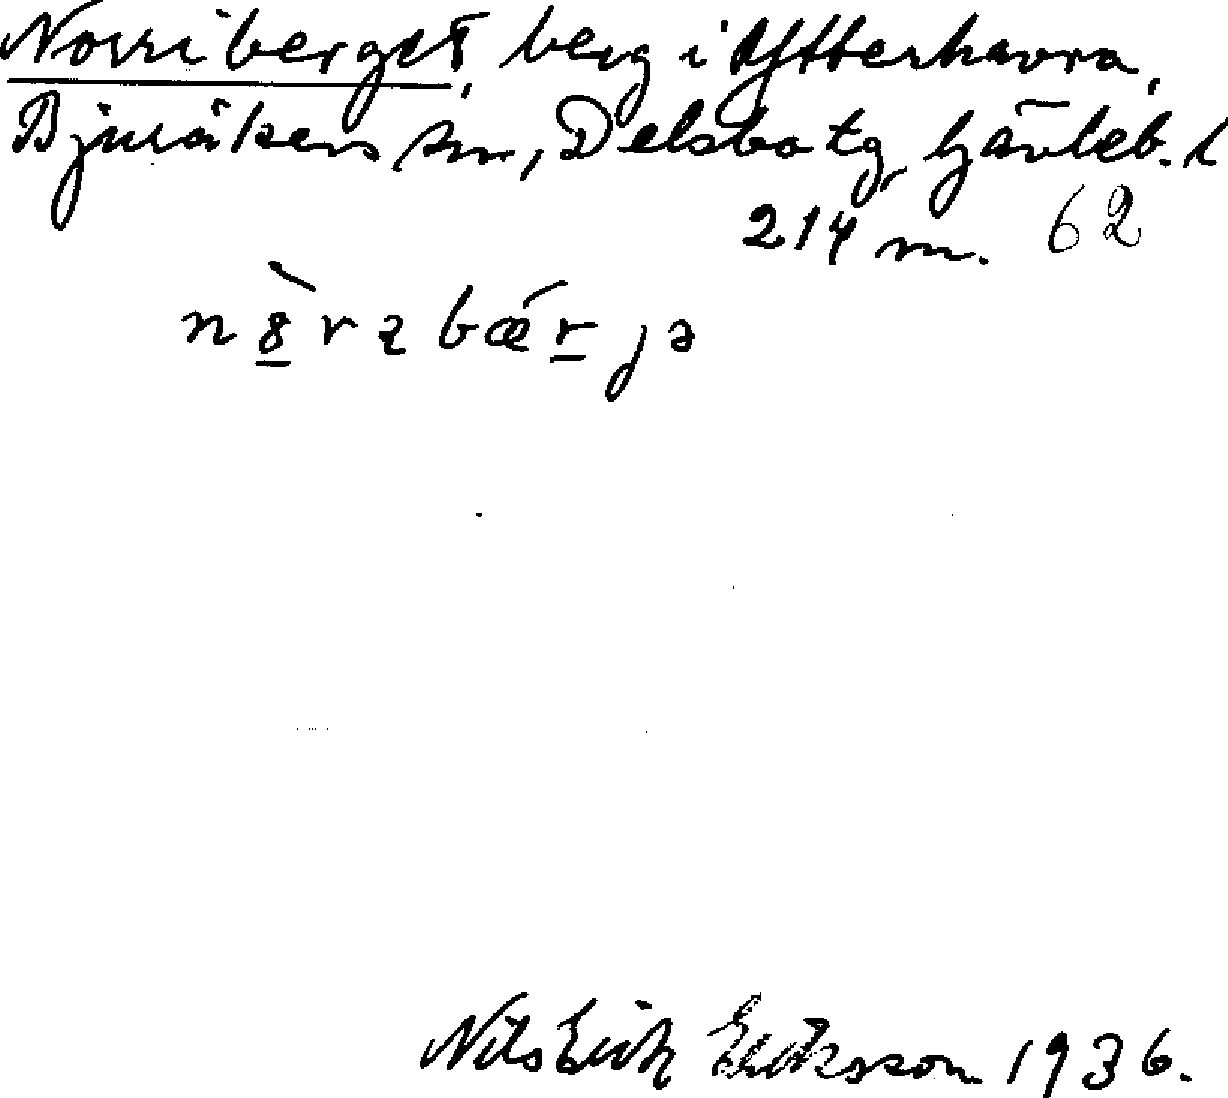 Norriberget, berg i Ytterhavra,
Bjuråkers sn, Delsbo tg, Gävleb. l
214 m. 62
n
Nils Erik Eriksson 1936.